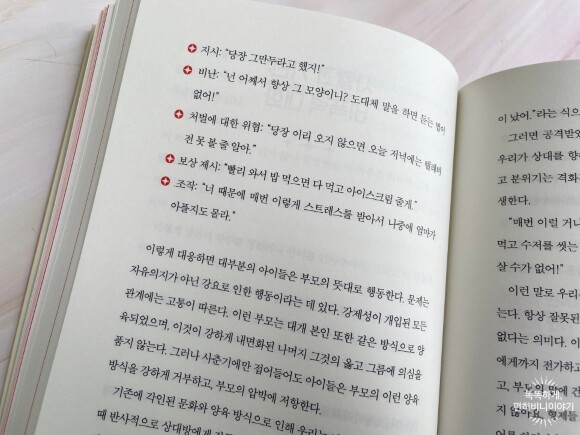 지시: “당장 그만두라고 했지!”
비난: “넌 어째서 항상 그 모양이니? 도대체 말을 하면 듣는 법이
없어!”
처벌에 대한 위협: “당장 이리 오지 않으면 오늘 저녁에는 텔레비
전 못 볼 줄 알아.”
보상 제시: “빨리 와서 밥 먹으면 다 먹고 아이스크림 줄게.”
조작: “너 때문에 매번 이렇게 스트레스를 받아서 나중에 엄마가
아플지도 몰라.”
이렇게 대응하면 대부분의 아이들은 부모의 뜻대로 행동한다. 문제는
자유의지가 아닌 강요로 인한 행동이라는 데 있다. 강제성이 개입된 모든
관계에는 고통이 따른다. 이런 부모는 대개 본인 또한 같은 방식으로 양
육되었으며, 이것이 강하게 내면화된 나머지 그것의 옳고 그름에 의심을
품지 않는다. 그러나 사춘기에만 접어들어도 아이들은 부모의 이런 양육
방식을 강하게 거부하고, 부모의 압박에 저항한다.
기존에 각인된 문화와 양육 방식으로 인해 우리는
때 반사적으로 상대방에게
이 났어.”라는 식으
그러면 공격받았
우리가 상대를 향
고 분위기는 격화
생한다.
“매번 이럴 거니
먹고 수저를 씻는
살 수가 없어!”
이런 말로 우리
는다. 항상 잘못된
없다는 의미다. 이
에게까지 전가하고
고, 부모의 말에 간
지 않아요, 형제들
똑똑하게,
면허비니이야기